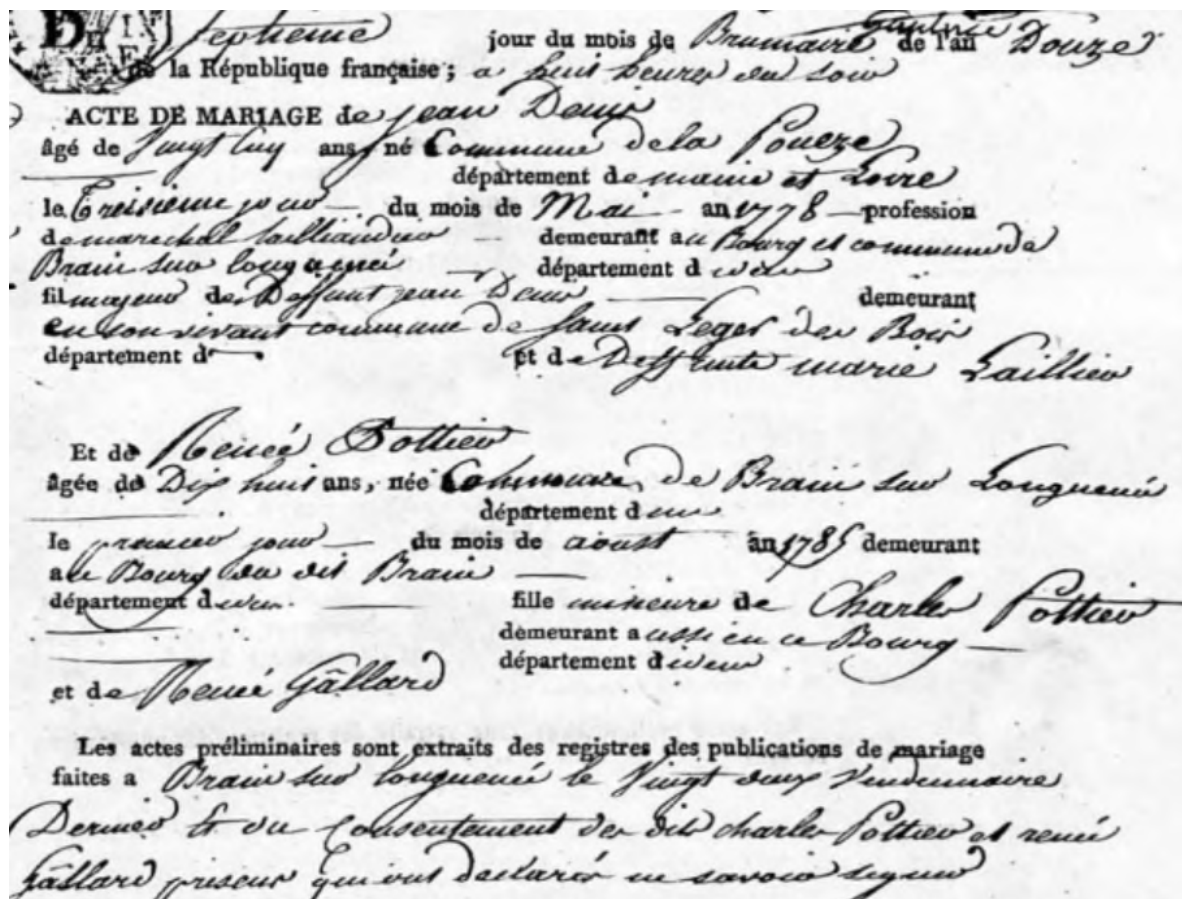 septieme jour du mois de Brumaire de l'an Douze
de la République française ; a huit heures du soir
ACTE DE MARIAGE de jean Denis
âgé de Vingt cinq ans, né Commune de la Poueze
département de maine et Loire
le Treisieme jour du mois de Mai an 1778 profession
de marechal tailliandier demeurant au Bourg et commune de
Brain sur longuenée département d idem
fil majeur de Deffunt jean Denis demeurant
en son vivant commune de Saint Leger des Bois
département d et de Deffunte marie Laillier
Et de Renée Pottier
âgée de Dix huit ans, née Commune de Brain sur Longuenée
département d idem
le premier jour du mois de aoust an 1785 demeurant
au Bourg du dit Brain
département d idem fille mineure de Charles Pottier
demeurant aussi en ce Bourg
département d idem
et de Renée Gâllard
Les actes préliminaires sont extraits des registres des publications de mariage
faites a Brain sur longuenée le Vingt deux Vendemiaire
Dernier et du Consentement des dits charles Pottier et renée
Gâllard qui ont declarés ne savoir signer